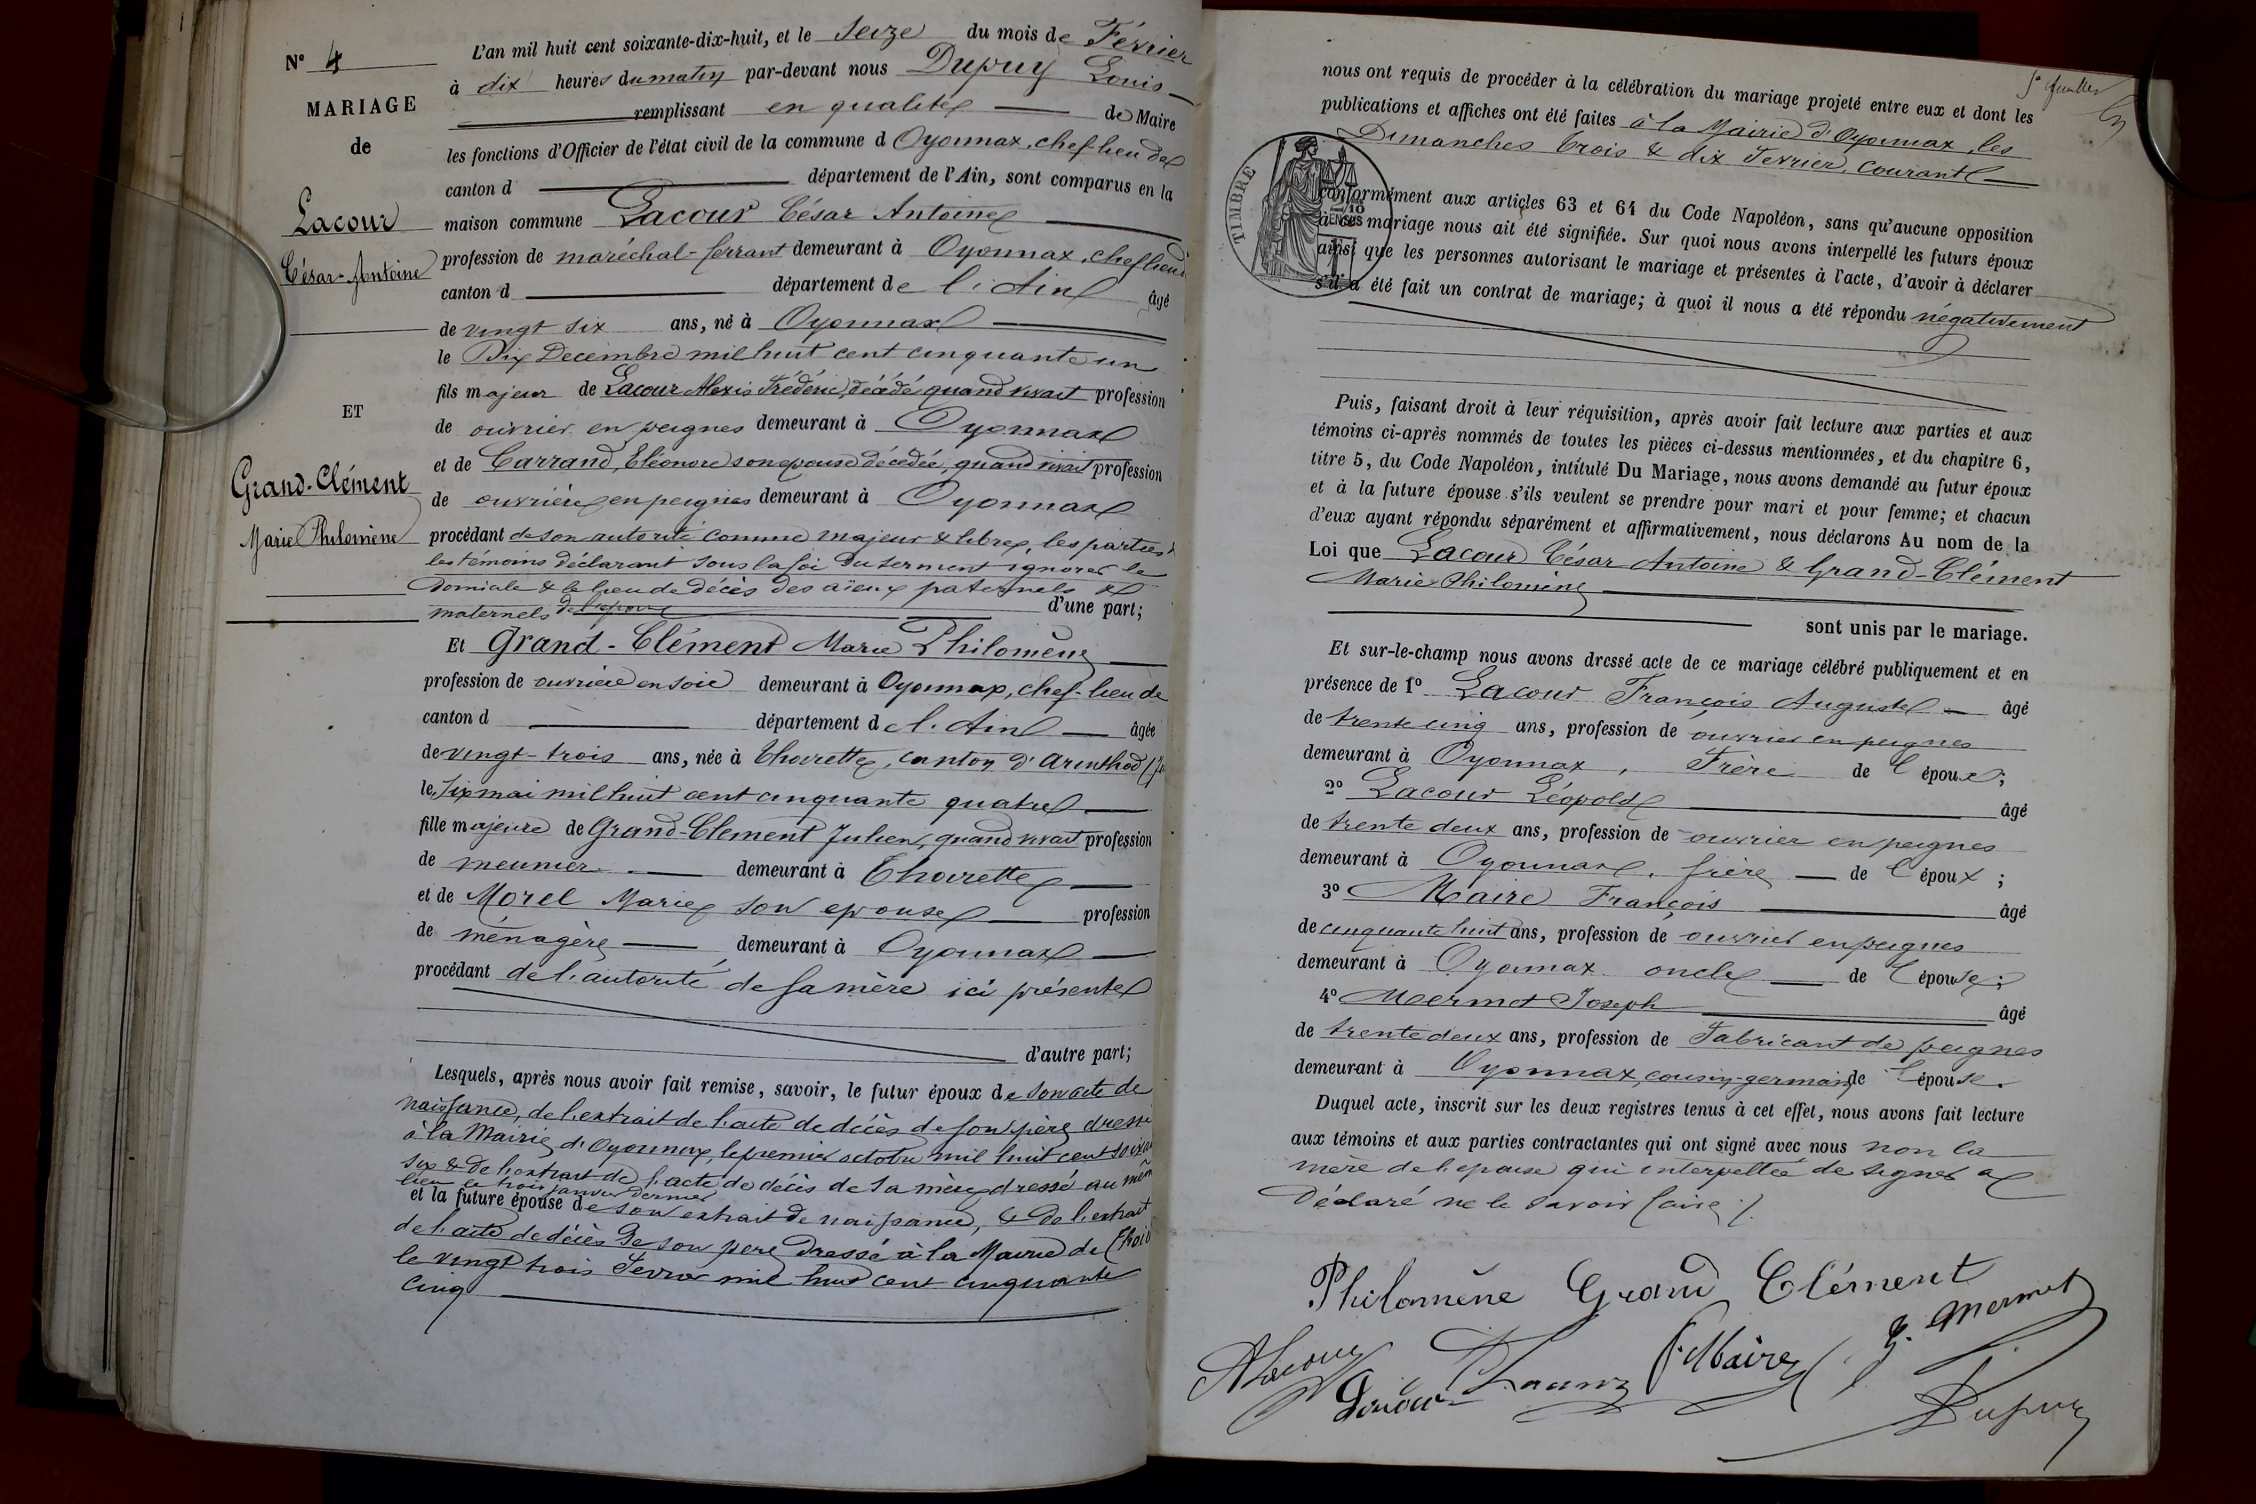 N° 4
MARIAGE
de
Lacour
César-Antoine
ET
Grand-Clément
Marie Philomène
L'an mil huit cent soixante-dix-huit, et le Seize du mois de Février
à dix heures du matin par-devant nous Dupuy Louis
remplissant en qualité de Maire
les fonctions d'Officier de l'état civil de la commune d Oyonnax, chef lieu de
canton d département de l'Ain, sont comparus en la
maison commune Lacour César Antoine
profession de maréchal-ferrant demeurant à Oyonnax, chef lieu
canton d département de l'Ain âgé
de vingt six ans, né à Oyonnax
le Dix Decembre mil huit cent cinquante un
fils majeur de Lacour Alexis Frédéric, décédé, quand vivait profession
de ouvrier en peignes demeurant à Oyonnax
et de Carrand, Eléonore son epouse décédée, quand vivait profession
de ouvrière en peignes demeurant à Oyonnax
procédant de son autorité comme majeur & libre, les parties &
les témoins déclarant sous la foi du serment ignorer le
Domicile & le lieu de décès des aïeux paternels &
maternels de l'epoux d'une part;
Et Grand-Clément Marie Philomène
profession de ouvrière en soie demeurant à Oyonnax, chef-lieu de
canton d département de l'Ain âgée
de vingt-trois ans, née à Thoirette, canton d'Arinthod
le Six mai mil huit cent cinquante quatre
fille majeure de Grand-Clement Julien, quand vivait profession
de meunier demeurant à Thoirette
et de Morel Marie son epouse profession
de ménagère demeurant à Oyonnax
procédant de l'autorité de sa mère ici présente
d'autre part;
Lesquels, après nous avoir fait remise, savoir, le futur époux de son acte de
naissance, de l'extrait de l'acte de décès de son père dressé
à la Mairie d'Oyonnax, le premier octobre mil huit cent
six & de l'extrait de l'acte de décès de sa mère dressé au
lieu le trois janvier dernier
et la future épouse de son extrait de naissance, & de l'extrait
de l'acte de décès de son père dressé à la Mairie de
le vingt trois Fevrier mil huit cent cinquante
cinq
nous ont requis de procéder à la célébration du mariage projeté entre eux et dont les
publications et affiches ont été faites à la Mairie d'Oyonnax, les
Dimanches trois & dix Fevrier, courant
TIMBRE
conformément aux articles 63 et 64 du Code Napoléon, sans qu'aucune opposition
à ce mariage nous ait été signifiée. Sur quoi nous avons interpellé les futurs époux
ainsi que les personnes autorisant le mariage et présentes à l'acte, d'avoir à déclarer
s'il a été fait un contrat de mariage; à quoi il nous a été répondu négativement
Puis, faisant droit à leur réquisition, après avoir fait lecture aux parties et aux
témoins ci-après nommés de toutes les pièces ci-dessus mentionnées, et du chapitre 6,
titre 5, du Code Napoléon, intitulé Du Mariage, nous avons demandé au futur époux
et à la future épouse s'ils veulent se prendre pour mari et pour femme; et chacun
d'eux ayant répondu séparément et affirmativement, nous déclarons Au nom de la
Loi que Lacour César Antoine & Grand-Clément
Marie Philomène
sont unis par le mariage.
Et sur-le-champ nous avons dressé acte de ce mariage célébré publiquement et en
présence de 1° Lacour François Auguste âgé
de trente cinq ans, profession de ouvrier en peignes
demeurant à Oyonnax, Frère de l'époux;
2° Lacour Léopold âgé
de trente deux ans, profession de ouvrier en peignes
demeurant à Oyonnax, frère de l'époux;
3° Maire François âgé
de cinquante huit ans, profession de ouvrier en peignes
demeurant à Oyonnax oncle de l'épouse;
4° Mermet Joseph âgé
de trente deux ans, profession de Fabricant de peignes
demeurant à Oyonnax, cousin-germain de l'épouse.
Duquel acte, inscrit sur les deux registres tenus à cet effet, nous avons fait lecture
aux témoins et aux parties contractantes qui ont signé avec nous non la
mère de l'epouse qui interpellée de signer a
Déclaré ne le savoir faire
Philomène Grand Clément
J. Mermet
F. Maire
ALacour
Lacour
Dupuy